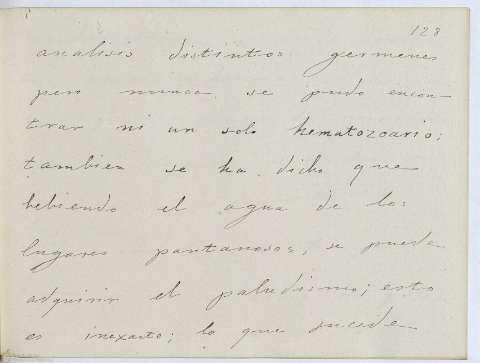 128
analisis distintos germenes
pero nunca se pudo encon-
trar ni un solo hematozoario;
tambien se ha dicho que
bebiendo el agua de los
lugares pantanosos, se puede
adquirir el paludismo; esto
es inexacto; lo que sucede